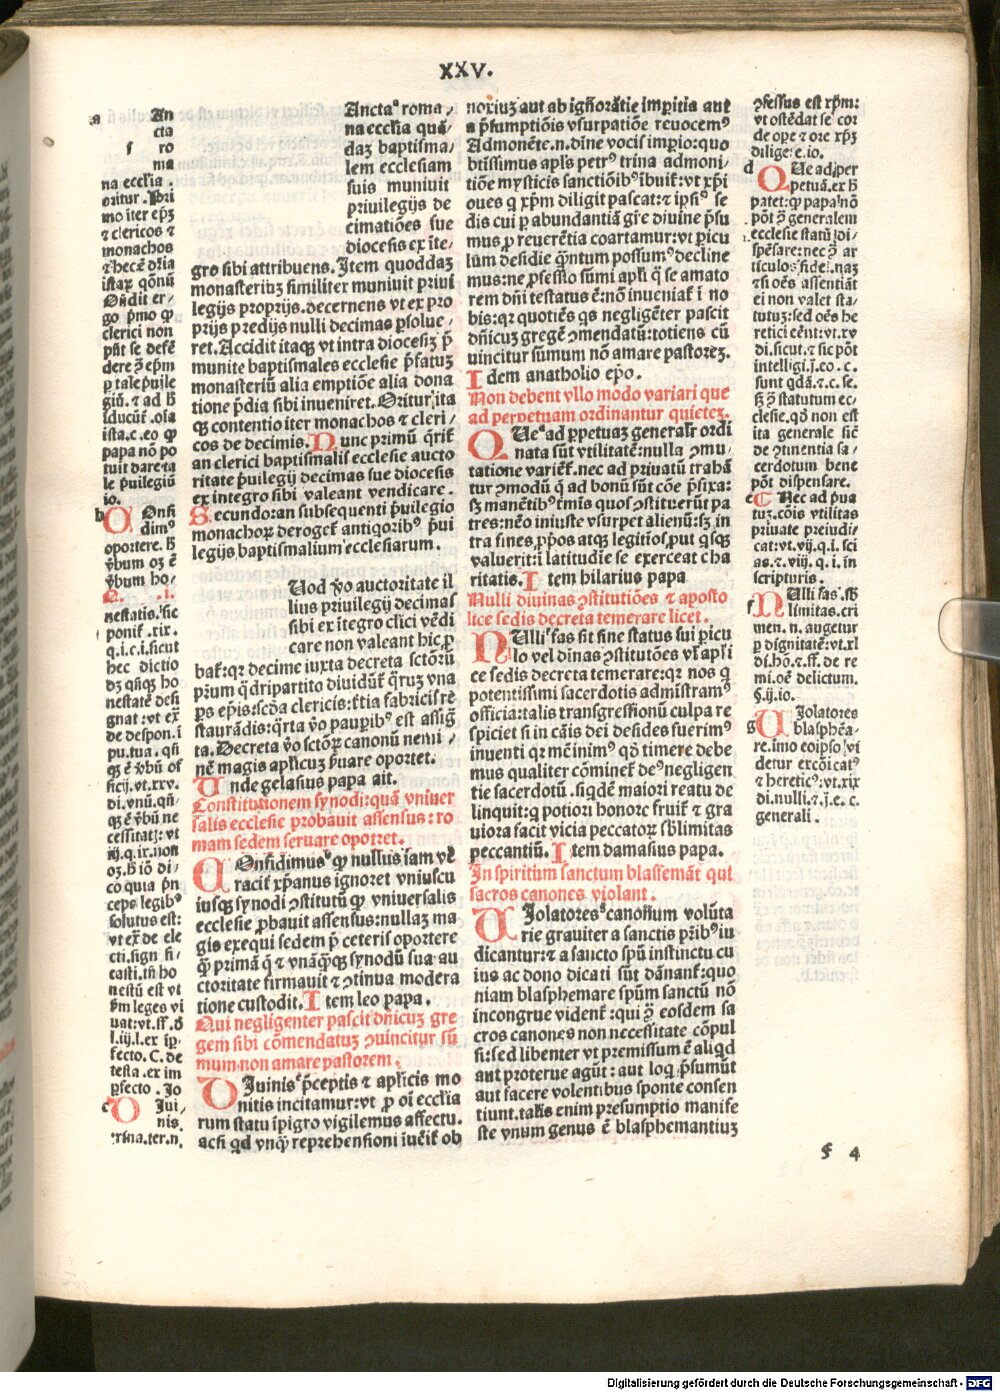 XXV.
a An
cta
f ro
ma
na ecclia.
oritur. Pri
mo iter ep̃ꝫ
⁊ clericos ⁊
monachos
⁊ hec ē dr̃ia
istaꝝ q̃onū
Oñdit er/
go p̃mo ꝙ
clerici non
pñt se defē
dere ꝑ ep̃m
ꝑ tale p̃uile
giū. ⁊ ad h̃
iducũt. oīa
ista. c. eo ꝙ
papa nō po
tuit dare ta
le p̃uilegiū
io.
b Oñfi
dim⁹
oportere. h̃
v̓bum oꝫ ē
v̓bum ho/
Q. .i.
nestatis. sic
ponit̃ .xix.
q. i. c. i. sicut
hec dictio
dꝫ qñqꝫ ho
nestatē desi
gnat: vt ex̃
de despon. i
pu. tua. qñ
qꝫ ē v̓bū of
ficij. vt. xxv.
di. vnū. qñ
qꝫ ē v̓bū ne
cessitatꝭ: vt
iij. q. ix. non
oꝫ. h̃ iō di/
co quia p̃n
ceps legibꝰ
solutus est:
vt ex̃ de ele
cti. sign. si/
casti. tñ ho
nestū est vt
ẜm leges vi
uat: vt. ff. d̓
l. iij. l. ex ip̃
fecto. C. de
testa. ex im
ꝑfecto. Jo
c D Jui/
nis.
trina. ter. n.
Anctaᵃ roma/
na ecclia quā/
daꝫ baptisma/
lem ecclesiam
suis muniuit
priuilegijs de
cimatiōes sue
diocesis ex ite/
gro sibi attribuens. Item quoddaꝫ
monasteriuꝫ similiter muniuit priui
legijs proprijs. decernens vt ex pro
prijs predijs nulli decimas ꝑsolue/
ret. Accidit itaqꝫ vt intra diocesiꝫ p̃
munite baptismales ecclesie p̃fatuꝫ
monasteriũ alia emptiōe alia dona
tione p̃dia sibi inueniret. Oritur ita
qꝫ contentio iter monachos ⁊ cleri/
cos de decimis. Nunc primū q̃rit̃
an clerici baptismalis ecclesie aucto
ritate p̃uilegij decimas sue diocesis
ex integro sibi valeant vendicare.
Secundo: an subsequenti p̃uilegio
monachoꝝ deroget̃ antiqorib⁹ p̃ui
legijs baptismalium ecclesiarum.
Uod v̓o auctoritate il
lius priuilegij decimas
sibi ex itegro clici vēdi
care non valeant hic ꝓ
bat̃: qꝛ decime iuxta decreta sctōrū
pr̃um qͣdripartito diuidũt̃ q̃ruꝫ vna
ꝑs ep̃is: scd̃a clericis: t̃tia fabricis re
staurādis: q̃rta v̓o paupib⁹ est assig̃
ta. Decreta v̓o sctōꝝ canonū nemi/
nē magis aplicuꝫ ẜuare oportet.
Unde gelasius papa ait.
Constitutionem synodi: quā vniuer
salis ecclesie probauit assensus: ro
mam sedem seruare opotret.
COnfidimusᵇ ꝙ nullus iam ve
racit̃ xp̃ianus ignoret vniuscu
iusqꝫ synodi ꝯstitutū ꝙ vniuersalis
ecclesie ꝓbauit assensus: nullaꝫ ma
gis exequi sedem p̃ ceteris oportere
ꝙ̃ primā q̃ ⁊ vnāq̃qꝫ synodū sua au
ctoritate firmauit ⁊ ꝯtinua modera
tione custodit. Item leo papa.
Qui negligenter pascit dñicuꝫ gre
gem sibi cōmendatuꝫ ꝯuincitur sũ
mum non amare pastorem.
DIuinisᶜ p̃ceptis ⁊ aplicis mo
nitis incitamur: vt ꝓ oi ecclia
rum statu ip̃igro vigilemus affectu.
ac si qd̃ vnqͣꝫ reprehensioni iuēit̃ ob
noxiuꝫ aut ab igñorātie imꝑitia aut
a p̃sumptiōis vsurpatiōe reuocem⁹
Admonēte. n. dīne vocis impio: quo
btissimus apl̃s petr⁹ trina admoni
tiōe mysticis sanctiōib⁹ ibuit̃: vt xp̃i
oues q xp̃m diligit pascat: ⁊ ip̃i⁹ se
dis cui ꝑ abundantiā gr̃e diuine p̃su
mus ꝓ reuerētia coartamur: vt ꝑicu
lum desidie q̃ntum possum⁹ decline
mus: ne ꝓfessio sūmi apl̃i q̃ se amato
rem dñi testatus ē: nō inueniat̃ i no
bis: qꝛ quotiēs qs negligēter pascit
dñicuꝫ gregē ꝯmendatū: totiens cū
uincitur sūmum nō amare pastoreꝫ.
Idem anatholio epo.
Non debent vllo modo variari que
ad perpetuam ordinantur quieteꝫ.
QUeᵈ ad ꝑpetuaꝫ generalr̃ ordi
nata sūt vtilitatē: nulla ꝯmu/
tatione variēt̃. nec ad priuatū trahā
tur ꝯmodū q̃ ad bonū sūt cōe p̃fixa:
sꝫ manētib⁹ t̃mis quos ꝯstituerūt pa
tres: nēo iniuste vsurpet alienū: sꝫ in
tra fines ꝓpos atqꝫ legitīos prout qsqꝫ
valuerit: i latitudīe se exerceat cha
ritatis. Item hilarius papa
Nulli diuinas ꝯstitutiōes ⁊ aposto
lice sedis decreta temerare licet.
NUlliᶠ fas sit sine status sui ꝑicu
lo vel dīnas ꝯstitutōes vl̓ apli
ce sedis decreta temerare: qꝛ nos q̃
potentissimi sacerdotis admistram⁹
officia: talis transgressionū culpa re
spiciet si in cāis dei desides fuerim⁹
inuenti qꝛ mēinim⁹ qd̓ timere debe
mus qualiter cōminet̃ de⁹ negligen
tie sacerdotū. siqdē maiori reatu de
linquit: q potiori honore fruit̃ ⁊ gra
uiora facit vicia peccatoꝝ sb̓limitas
peccantiū. Item damasius papa.
In spiritum sanctum blasfemāt qui
sacros canones violant.
UJolatoresᵍ canonum volūta
rie grauiter a sanctis pr̃ib⁹ iu
dicantur: ⁊ a sancto sp̄u instinctu cu
ius ac dono dicati sūt dānant̃: quo
niam blasphemare sp̄um sanctū nō
incongrue vident̃: qui ꝯ̃ eosdem sa
cros canones non necessitate cōpul
si: sed libenter vt premissum ē aliqd
aut proterue agūt: aut loq p̃sumūt
aut facere volentibus sponte consen
tiunt. talis enim presumptio manife
ste vnum genus ē blasphemantiuꝫ
ꝯfessus est xp̃m:
vt ostēdat se cor
de ope ⁊ ore xp̃ꝫ
dilige: e. io.
d QUe ad ꝑper
petuā. ex h̃
patet: ꝙ papa nō
pōt ꝯ̃ generalem
ecclesie statū di/
spēsare: nec ꝯ̃ ar
ticulos fidei. naꝫ
⁊ si oēs assentiāt
ei non valet sta/
tutuꝫ: sed oēs he
retici cēnt: vt. xv
di. sicut. ⁊ sic pōt
intelligi. j. eo. c.
sunt qdā. ⁊. c. se.
sꝫ ꝯ̃ statutum ec/
clesie. qd̓ non est
ita generale sic̃
de ꝯtinentia sa/
cerdotum bene
pōt dispensare.
e C Nec ad p̃ua
tuꝫ. cōis vtilitas
priuate preiudi/
cat: vt. vij. q. i. sci
as. ⁊. viij. q. i. in
scripturis.
f NUlli fas. sb̓
limitas. cri
men. n. augetur
ꝑ dignitatē: vt. xl
di. hō. c. ff. de re
mi. oē delictum.
§. ij. io.
g UJolatores
blasphēa/
re. imo eoipso vi
detur excōicat⁹
⁊ heretic⁹: vt. xix
di. nulli. ⁊. j. e. c.
generali.
f 4
Digitalisierung gefördert durch die Deutsche Forschungsgemeinschaft - DFG